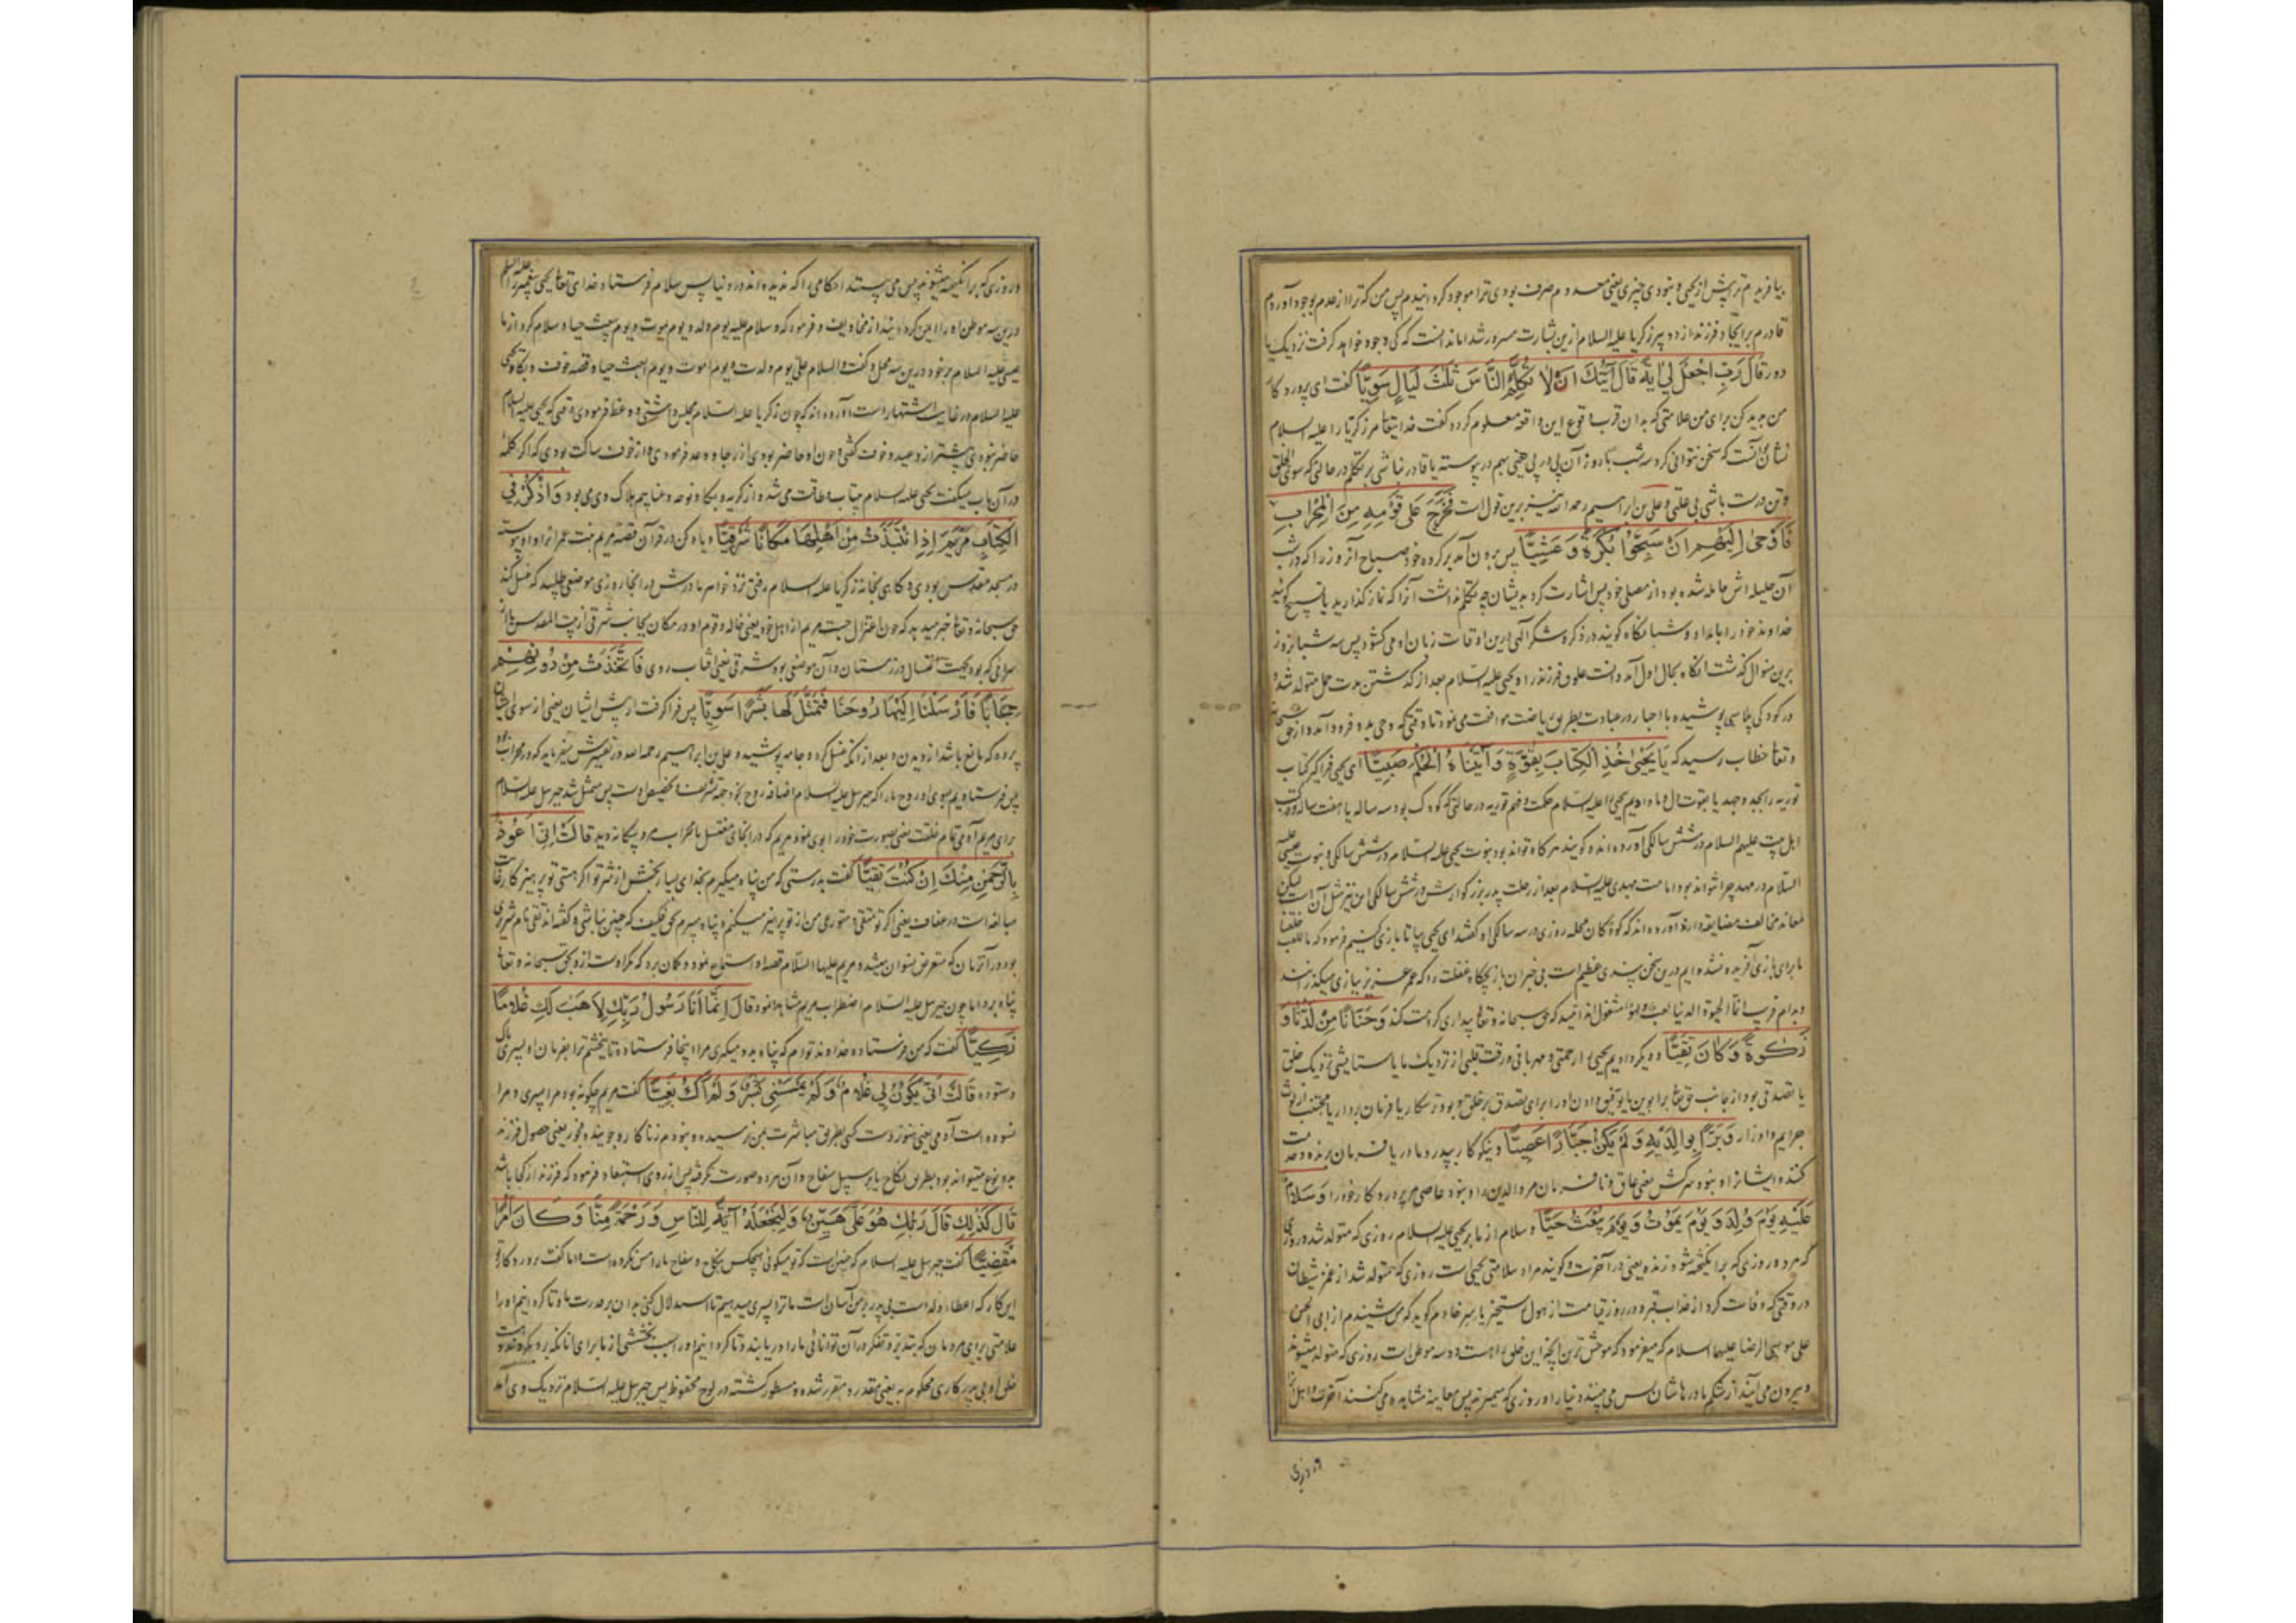 بیافریدم ترا پیش از یحیی و نبودی چیزی یعنی معدوم صرف بودی ترا موجود گردانیدم پس من که ترا از عدم بوجود آوردم
قادرم بر ایجاد فرزند از دو پیر زکریا علیه السلام ازین بشارت مسرور شد اما ندانست که کی وجود خواهد گرفت نزدیک یا
دور قَالَ رَبِّ اجْعَلْ لِی آیَةً قَالَ آیَتُکَ اَنْ لَا تُکَلِّمَ النَّاسَ ثَلٰثَ لَیَالٍ سَوِیًّا گفت ای پروردکا
من پدید کن برای من علامتی که بدان قرب وقوع این واقعه معلوم کردد گفت خدایتعا مر زکریا را علیه السلام
نشان آنست که سخن نتوانی کرد سه شب با روز آن پی در پی یعنی بهم در پیوسته یا قادر نباشی بر تکلم در حالتی که سوی الخلق
و تن درست باشی بی علتی و علی بن ابراهیم رحمه الله نیز برین قول است فَخَرَجَ عَلٰی قَوْمِهِ مِنَ الْمِحْرَابِ
فَاَوْحٰی اِلَیْهِمْ اَنْ سَبِّحُوا بُکْرَةً وَعَشِیًّا پس برون آمد بر کروه خود صباح آن روز را که در شب
آن حلیله اش حامله شده بود از مصلی خود پس اشارت کرد بدیشان چه تکلم نداشت آنرا که نماز کذارید یا تسبیح کوئید
خداوند خود را بامداد و شبانکاه کویند در ذکر و شکر الهی درین اوقات زبان او می کشود پس سه شبانروز
برین منوال کذشت انکاه بحال اول آمد و یحیی علیه السلام بعد از کذشتن مدت حمل متولد شد
در کودکی پلاسی پوشیده با احبار در عبادت بطریق ریاضت موافقت می نمود تا وقتی که وحی بدو فرود آمد و از حق سبحانه
و تعا خطاب رسید که یَا یَحْیٰی خُذِ الْکِتَابَ بِقُوَّةٍ وَآتَیْنَاهُ الْحُکْمَ صَبِیًّا ای یحیی فراکیر کتاب
توریه را بجد و جهد یا بقوت دل و ما دادیم یحیی را علیه السلام حکمت و فهم توریه در حالتی که کودک بود سه ساله یا هفت ساله
اهل بیت علیهم السلام در شش سالکی آورده اند و کویند هر کاه تواند بود نبوت یحیی علیه السلام در شش سالکی و نبوت عیسی
السلام در مهد چرا نتواند بود امامت مهدی علیه السلام بعد از رحلت پدر بزرکوارش در شش سالکی این نیز مثل آن است لیکن
معاند مخالف مضایقه دارد و آورده اند که کودکان محله روزی در سه سالکی او کفتند ای یحیی بیا تا بازی کنیم فرمود که ما للعب خلقنا
ما برای بازی آفریده نشده ایم درین سخن پندی عظیم است بی خبران بازیچه کاه غفلت را که عمر عزیز ببازی میکذرانند
و بدام فریب انما الحیوة الدنیا لعب و لهو مشغول اند امید که حق سبحانه و تعا بیداری کرامت کند وَحَنَانًا مِنْ لَدُنَّا وَ
زَکٰوةً وَکَانَ تَقِیًّا و دیکر دادیم یحیی را رحمتی و مهربانی و رقت قلبی از نزدیک ما یا ستایشی نزدیک خلق
یا تصدقی بود از جانب حق تعا بر ابوین یا توفیق دادن او را برای تصدق بر خلق و بود ترسکار یا فرمان بردار یا مجتنب از لوث
جرایم و اوزار وَبَرًّا بِوَالِدَیْهِ وَلَمْ یَکُنْ جَبَّارًا عَصِیًّا و نیکوکار بپدر و مادر یا فرمان برنده و خدمت
کننده ایشان را و نبود سرکش یعنی عاق و نافرمان مر والدین را و نبود عاصی مر پروردکار خود را وَسَلَامٌ
عَلَیْهِ یَوْمَ وُلِدَ وَیَوْمَ یَمُوتُ وَیَوْمَ یُبْعَثُ حَیًّا و سلام از ما بر یحیی علیه السلام روزی که متولد شد و روزی
که مرد و روزی که برانکیخته شود زنده یعنی در آخرت و کویند مراد سلامتی یحیی است روزی که متولد شد از غمز شیطان
در وقتی که وفات کرد از عذاب قبر و در روز قیامت از هول رستخیز یاسر خادم کوید که من شنیدم از ابی الحسن
علی موسی الرضا علیهما السلام که میفرمود که موحش ترین آنچه این خلق را هست در سه موطن است روزی که متولد میشوند
و بیرون می آیند از شکم مادرهاشان پس می بینند دنیا را و روزی که میمیرند پس معاینه و مشاهده می کنند آخرت و اهل آنرا
و روزی
و روزی که برانکیخته میشوند پس می بینند احکامی را که ندیده اند در دنیا پس سلام فرستاد خدای تعا یحیی پیغمبر را علیه السلم
درین سه موطن او را ایمن کردانید از مخاویف و فرمود که و سلام علیه یوم ولد و یوم یموت و یوم یبعث حیا و سلام کرد از ما
عیسی علیه السلام بر خود درین سه محل و کفت والسلام علی یوم ولدت و یوم اموت و یوم ابعث حیا و قصه خوف و بکاء یحیی
علیه السلام در غایت اشتهار است آورده اند که چون زکریا علیه السلام مجلس داشتی و وعظ فرمودی وقتی که یحیی علیه السلام
حاضر نبودی بیشتر از وعید و خوف کفتی و چون او حاضر بودی از رجا و وعد فرمودی و از خوف ساکت بودی که اکر کلمه
در آن باب میکفت یحیی علیه السلام بیتاب و طاقت می شد و از کریه و بکا و نوحه و عنا بیم هلاک وی می بود وَاذْکُرْ فِی
الْکِتَابِ مَرْیَمَ اِذِ انْتَبَذَتْ مِنْ اَهْلِهَا مَکَانًا شَرْقِیًّا و یاد کن در قرآن قصه مریم بنت عمران او پیوسته
در مسجد مقدس بودی و کاهی بخانه زکریا علیه السلام رفتی نزد خواهر مادرش در انجا روزی موضعی طلبید که غسل کند
حق سبحانه و تعا خبر میدهد که چون اعتزال جست مریم از اهل خود یعنی خاله و قوم او در مکان بجانب شرقی از بیت المقدس یا از
سرائی که بود بجهت اغتسال در زمستان و آن موضعی بود شرقی یعنی آفتاب روی فَاتَّخَذَتْ مِنْ دُونِهِمْ
حِجَابًا فَاَرْسَلْنَا اِلَیْهَا رُوحَنَا فَتَمَثَّلَ لَهَا بَشَرًا سَوِیًّا پس فراکرفت از پیش ایشان یعنی از سوی ایشان
پرده که مانع باشد از دیدن و بعد از آنکه غسل کرد و جامه پوشید و علی بن ابراهیم رحمه الله در تفسیرش میفرماید که در محراب بود
پس فرستادیم بسوی او روح ما را که جبرئیل علیه السلام اضافه روح بخود جهة تشریف و تخصیص اوست پس متمثل شد جبرئیل علیه السلام
برای مریم آدمی تمام خلقت یعنی بصورت خود را بوی نمود مریم که در انجای مغتسل یا محراب مرد بیکانه دید قَالَتْ اِنِّی اَعُوذُ
بِالرَّحْمٰنِ مِنْکَ اِنْ کُنْتَ تَقِیًّا کفت بدرستی که من پناه میکیرم بخدای بسیار بخشش از شر تو اکر هستی تو پرهیزکار
مبالغه است در عفاف یعنی اکر تو متقی و متورعی من از تو پرهیز میکنم و پناه میبرم بحق فکیف که چنین نباشی و کفته اند تقی نام شریری
بود در آن زمان که متعرض نسوان میشد و مریم علیها السلام قصه او استماع نموده و کمان برد که مکر اوست ازو بحق سبحانه و تعا
پناه برد اما چون جبرئیل علیه السلام اضطراب مریم مشاهده نمود قَالَ اِنَّمَا اَنَا رَسُولُ رَبِّکِ لِاَهَبَ لَکِ غُلَامًا
زَکِیًّا کفت که من فرستاده خداوند توام که پناه بدو میکیری مرا اینجا فرستاده تا ببخشم ترا بفرمان او پسری پاک
و ستوده قَالَتْ اَنّٰی یَکُونُ لِی غُلَامٌ وَلَمْ یَمْسَسْنِی بَشَرٌ وَلَمْ اَکُ بَغِیًّا کفت مریم چکونه بود مرا پسری و مرا
نسوده است آدمی یعنی هنوز دست کسی بطریق مباشرت بمن نرسیده و نبودم زناکار و جوینده فجور یعنی حصول فرزند
بدو نوع میتواند بود بطریق نکاح یا بر سبیل سفاح و آن هر دو صورت نکرفته پس از روی استبعاد فرمود که فرزند از کجا باشد
قَالَ کَذٰلِکِ قَالَ رَبُّکِ هُوَ عَلَیَّ هَیِّنٌ وَلِنَجْعَلَهُ آیَةً لِلنَّاسِ وَرَحْمَةً مِنَّا وَکَانَ اَمْرًا
مَقْضِیًّا کفت جبرئیل علیه السلام که چنین است که تو میکوئی هیچکس بنکاح و سفاح ترا مس نکرده است اما کفت پروردکار تو
این کار که اعطاء ولد است بی پدر بر من آسان است ما ترا پسری میدهیم تا استدلال کنی بدان بر قدرت ما و تا کردانیم او را
علامتی برای مردمان که بتدبر و تفکر در آن توانائی ما را دریابند و تا کردانیم او را سبب بخششی از ما برای آنانکه برو بکروند و هست
خلق او بی پدر کاری محکوم به یعنی مقدر و مقرر شده و مسطور کشته در لوح محفوظ پس جبرئیل علیه السلام نزدیک وی آمد